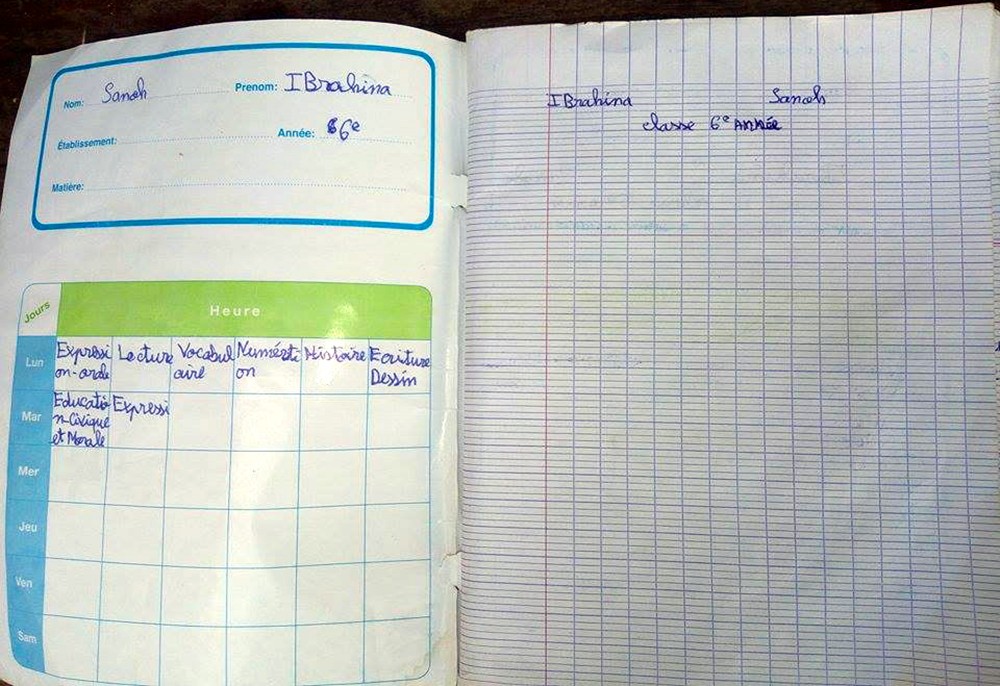 Nom: Sanoh Prenom: IBrahina
Établissement: Année: 6e
Matière:
Jours Heure
Lun Expressi Lecture Vocabul Numérati Histoire Ecriture
on-orale aire on Dessin
Mar Educatio Expressi
n-Civique
et Morale
Mer
Jeu
Ven
Sam
IBrahina Sanoh
classe 6e ANNÉE